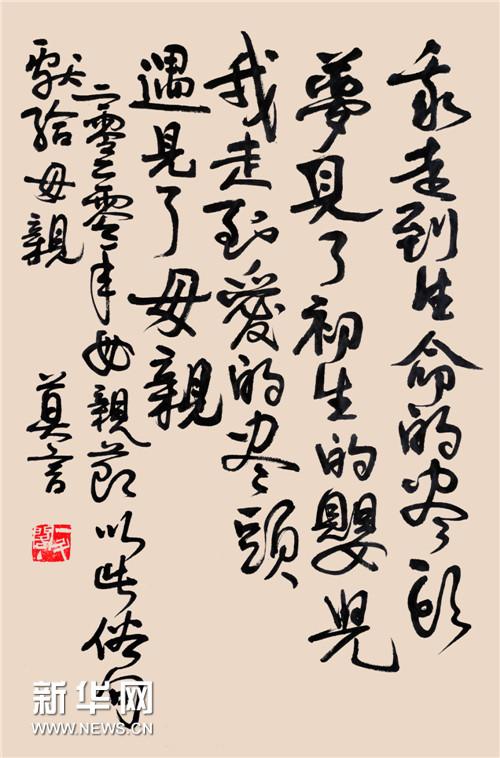 我走到生命的尽頭
夢見了初生的嬰兒
我走到愛的尽頭
遇見了母親
二零一零年母親節以此俗句
獻給母親
莫言
新华网
WWW.NEWS.CN